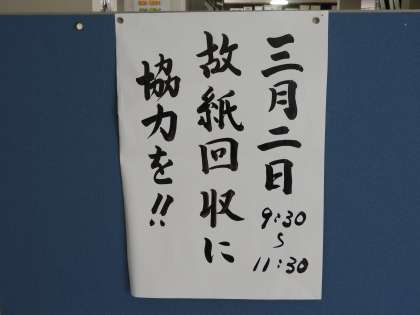 三月二日
9:30
〜
11:30
故紙回収に
協力を!!